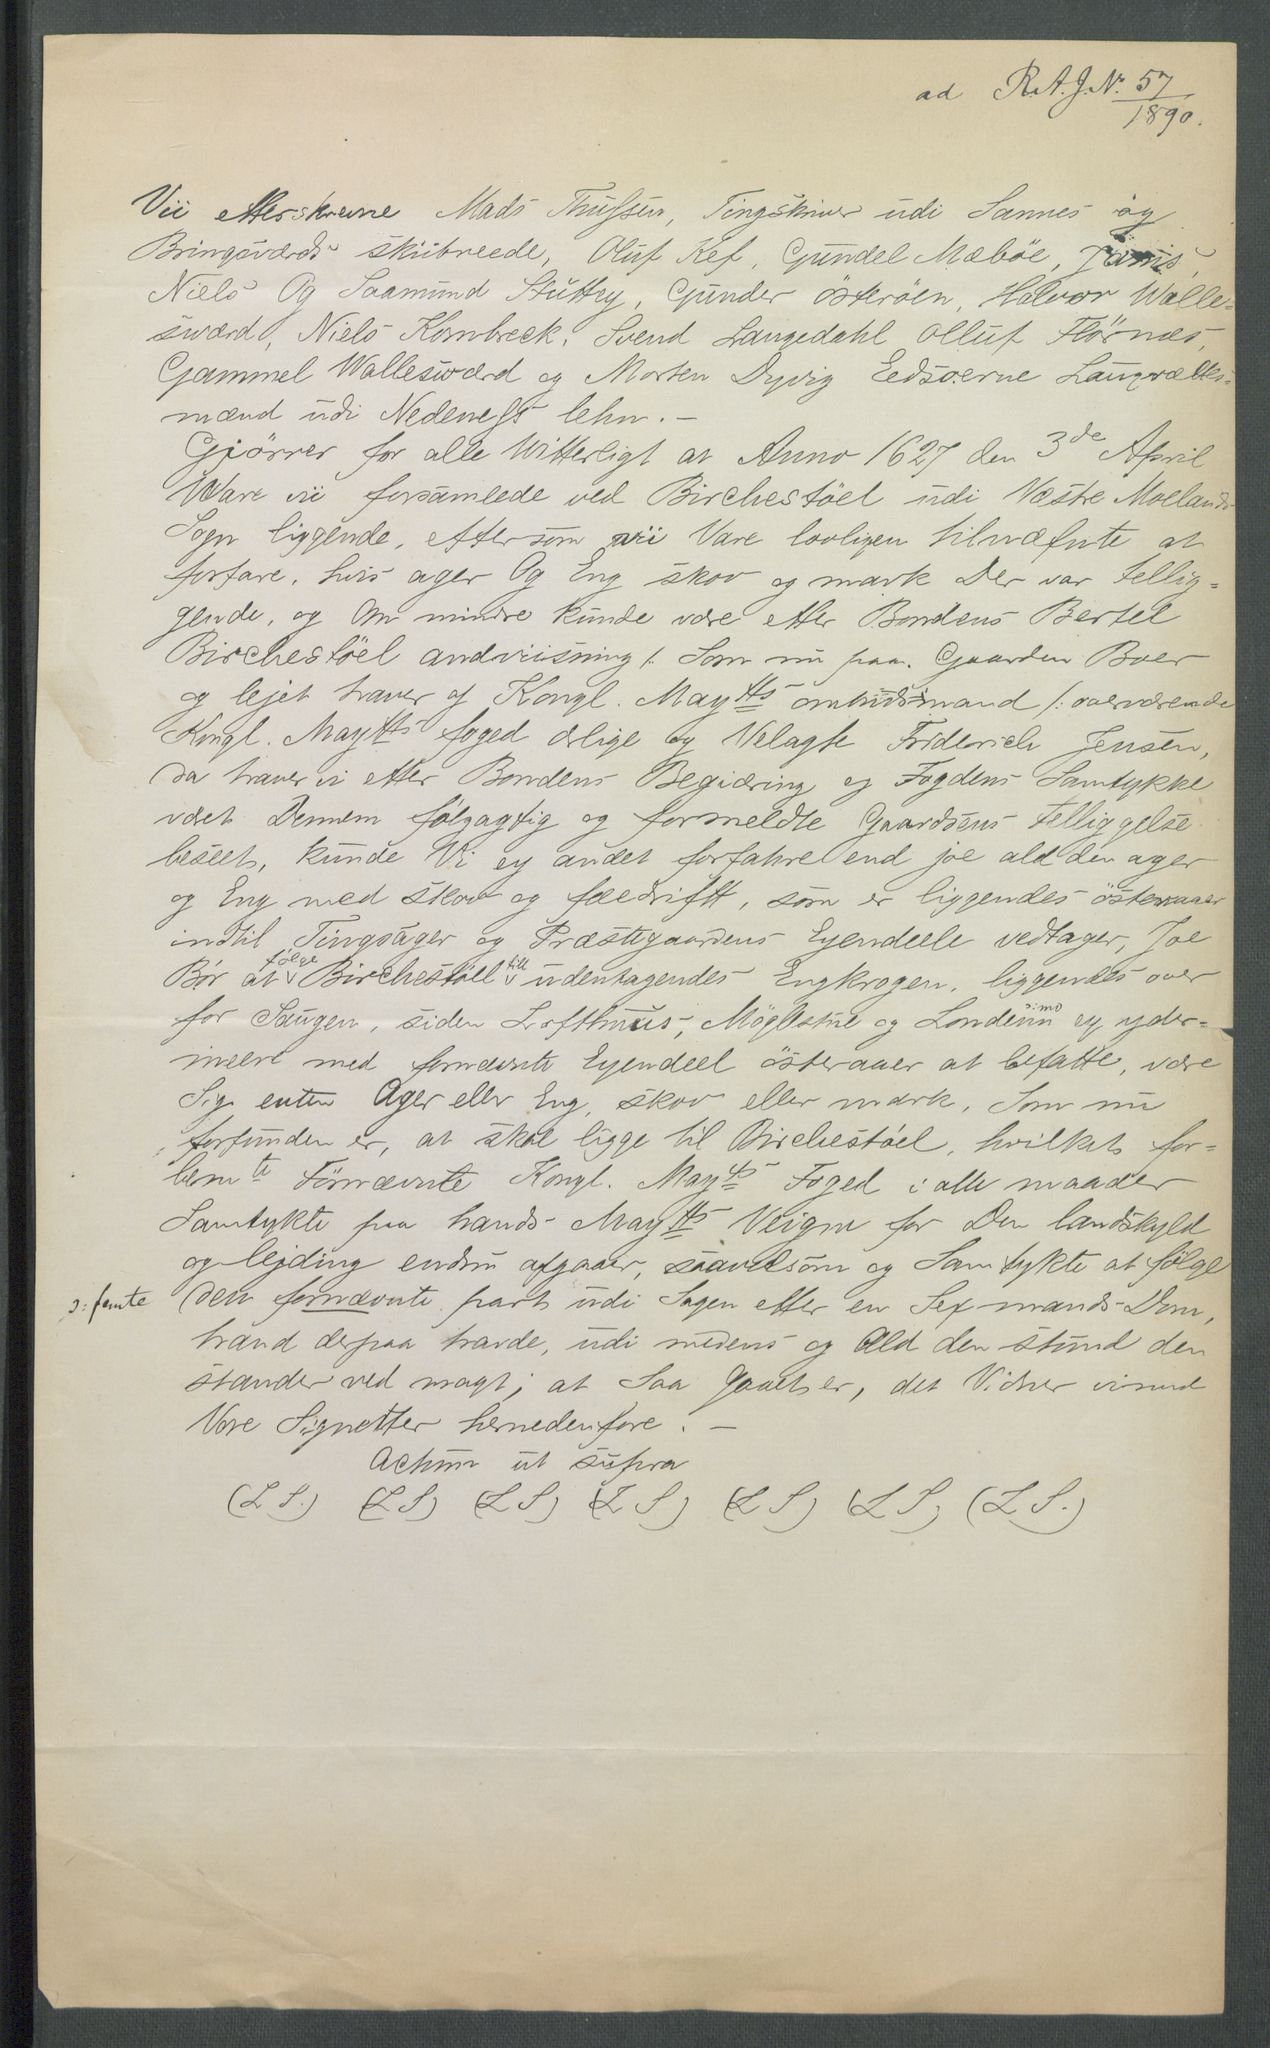 ad R.A.J.No. 57
1890.
Vii efterskrevne Mads Thussen, Tingskriver udi Sannes og
Bringsværds skiibreede, Oluf Kef, Gundel Mæbøe,
Niels Og Saamund Stuttey, Gunder österöen, Halvor Walle-
sværd, Niels Kornbreck, Svend Langedahl Olluf Flörnæs,
Gammel Wallesværd og Morten Dyvig Eedsoerne Laugrættes-
mænd udi Nedeneſs lehn. —
Giörrer for alle Witterligt at Anno 1627 den 3de April
Ware vii forsamlede ved Birchestöel udi Væstre Moelands
Sogn liggende, eftersom vii Vare lovligen tilnæfnte at
forfare, hvis ager Og Eng skov og mark Der var tellig-
gende, og Om mindre kunde være efter Bondens Bertel
Birchestöel andviisning /: Som nu paa Gaarden Boer
og lejet haver af Kongl. Maytts ombudsmand /: overværende
Kongl. Maytts foged ærlige og Velagte Friderich Jensen,
da haver vi efter Bondens Begiæring og Fogdens Samtykke
været Dennem fölgagtig og formeldte Gaardsens Telliggelse
beseet, kunde Vi ey andet forfahre end joe ald den ager
og Eng med skov og fædrift, som er liggendes österaaer
indtil Tingsager og Præstegaardens Eyendeele vedtager, Joe
Bör at fölge Birchestöel till udentagendes Engkrogen, liggendes over
for Saugen, siden Lofthuus, Möglestue og Londevim ey yder-
meere med fornævnte Eyendeel österaaer at befatte, være
Sig enten Ager eller Eng, skov eller mark, Som nu
forfunden er, at skal ligge til Birchestöel, hvilket for-
bemte Förnævnte Kongl. Maytts Foged i alle maader
Samtykte paa hands Maytts Veigne for Den landskyld
og lejding endnu afgaaer, saavelsom og Samtykte at fölge
ɔ: femte den fornævnte part udi Sagen efter en Sex mands Dom,
hand derpaa havde, udi midens og Ald den stund den
stander ved magt; at Saa Gaaet er, det Vidner vi med
Vore Signetter hernedenfore. —
Actum ut supra
(L S.) (L S) (L S) (L S) (L S) (L S) (L S.)